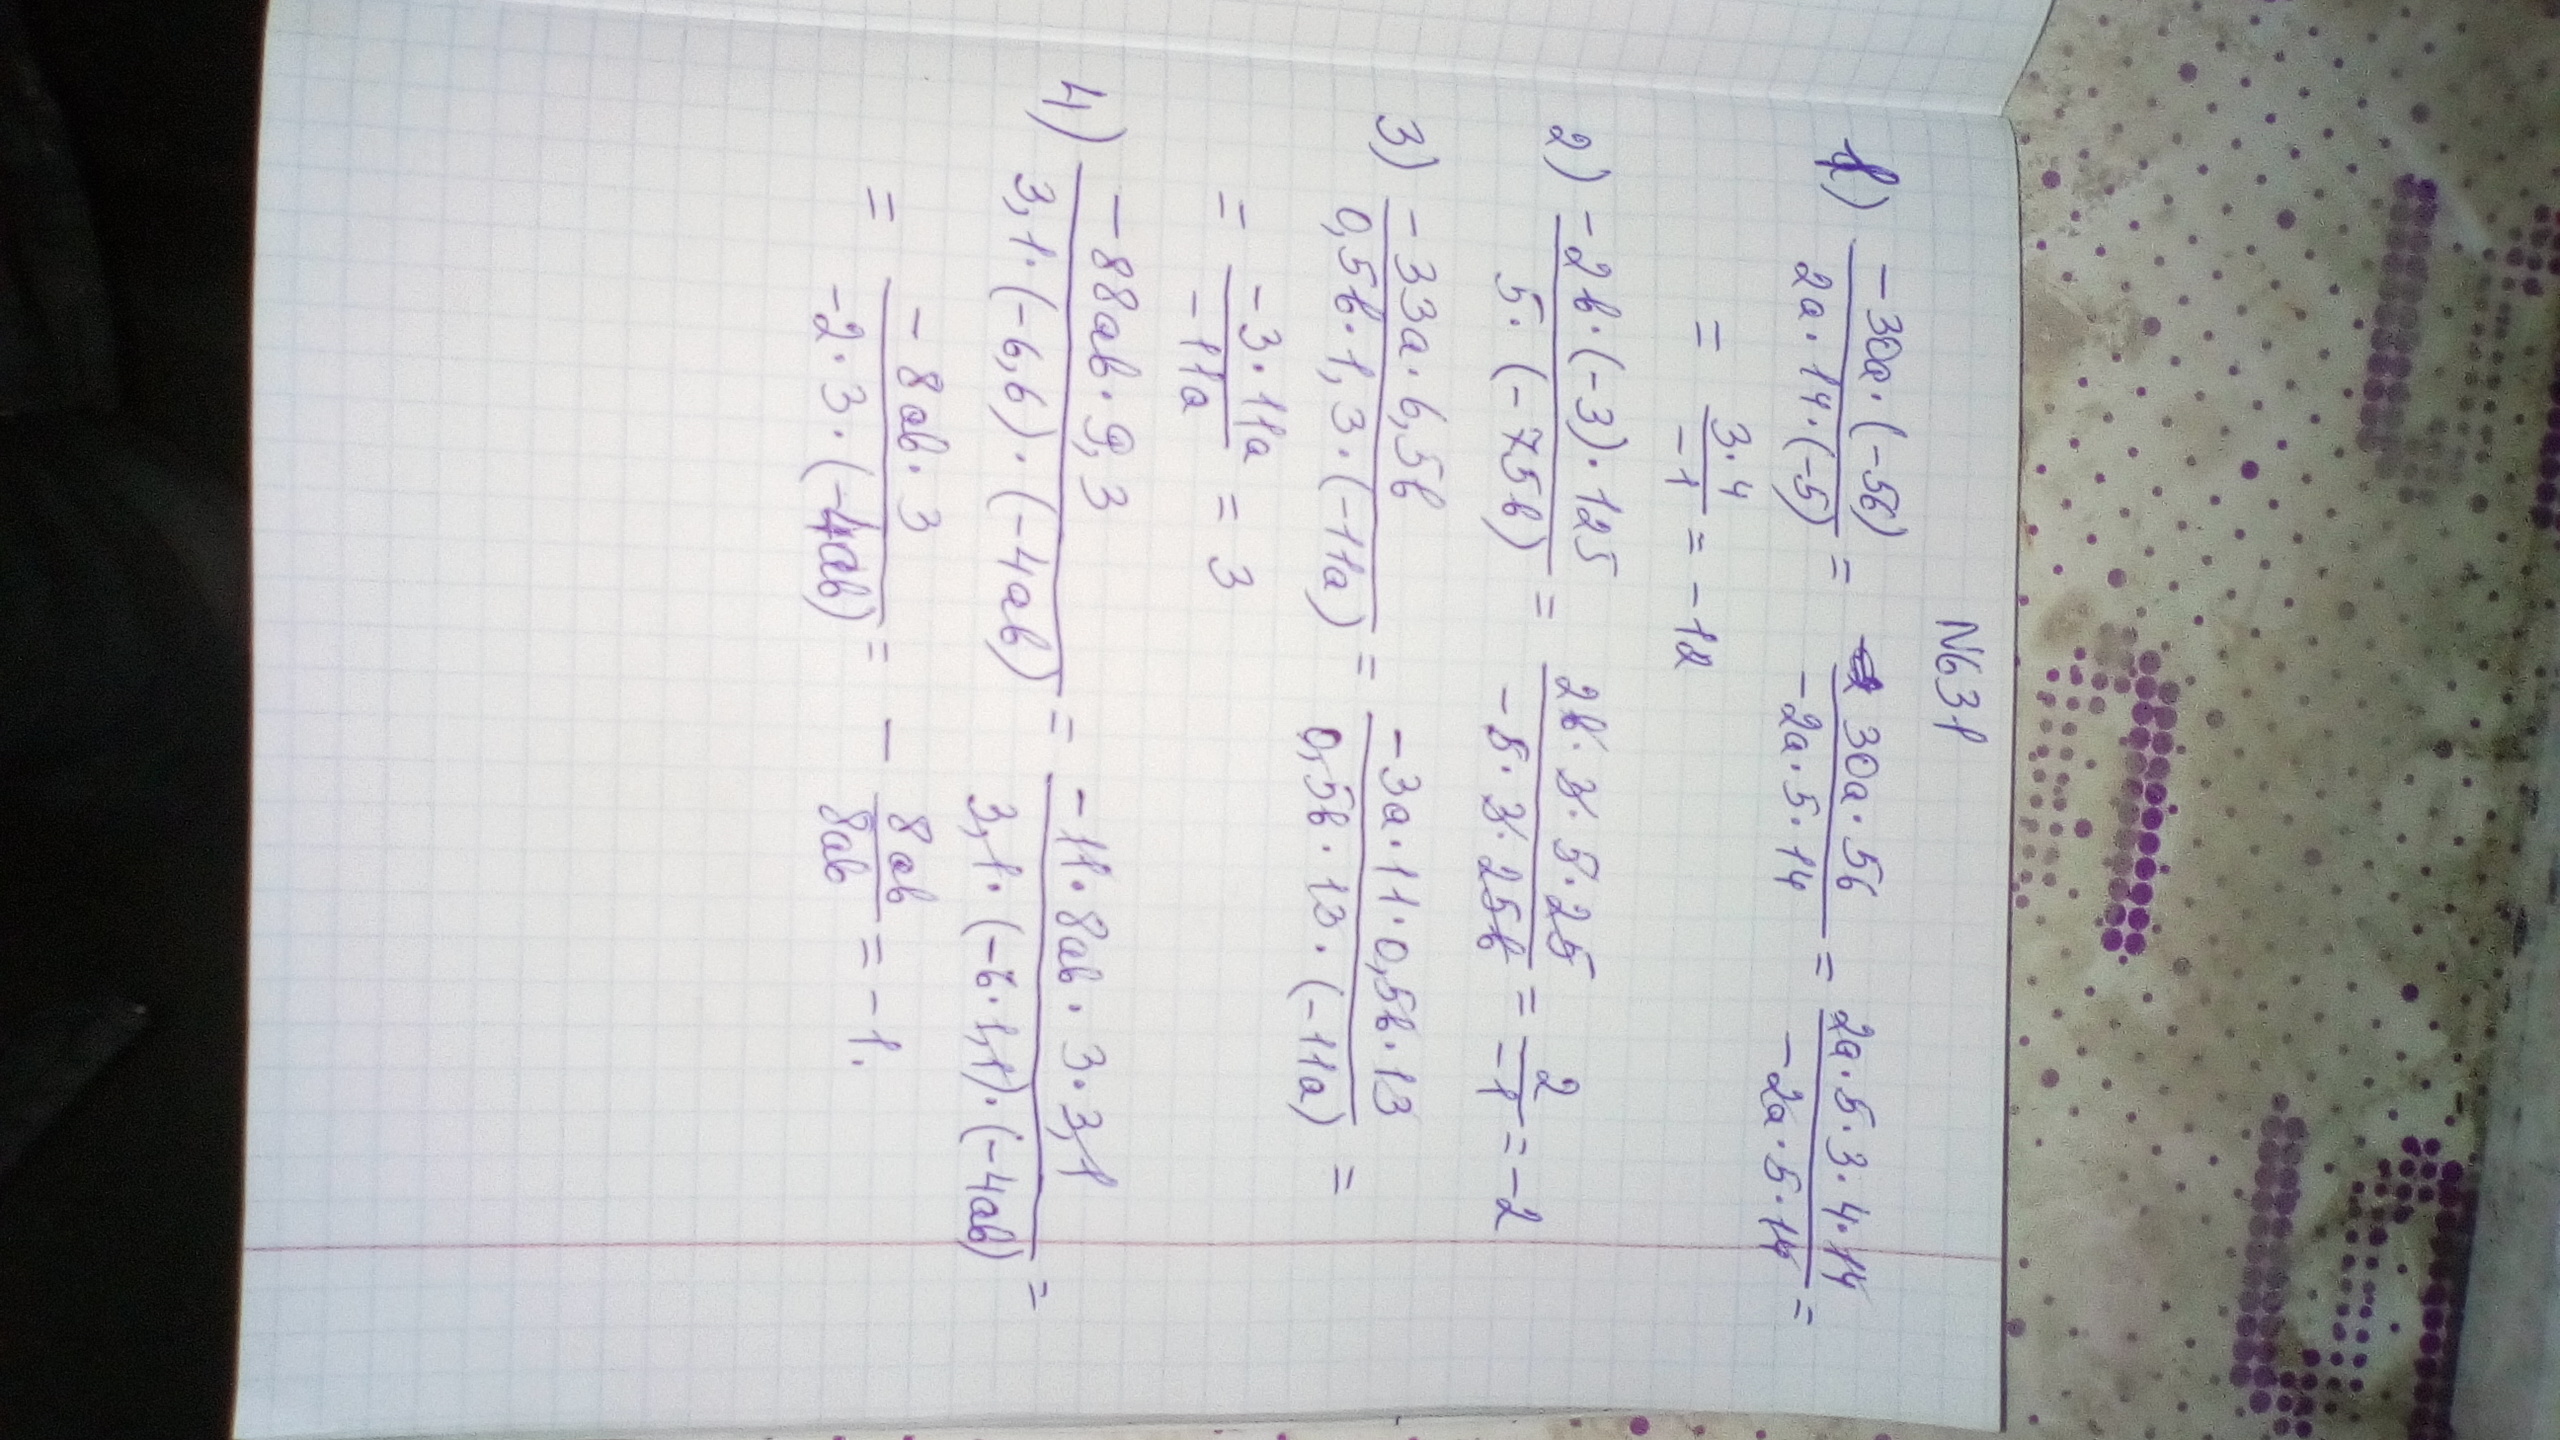 N631
1) -30a·(-56)/2a·14·(-5) = 30a·56/-2a·5·14 = 2a·5·3·4·14/-2a·5·14 =
= 3·4/-1 = -12
2) -2b·(-3)·125/5·(-75b) = 2b·3·5·25/-5·3·25b = 2/-1 = -2
3) -33a·6,5b/0,5b·1,3·(-11a) = -3a·11·0,5b·13/0,5b·13·(-11a) =
= -3·11a/-11a = 3
4) -88ab·9,3/3,1·(-6,6)·(-4ab) = -11·8ab·3·3,1/3,1·(-6·1,1)·(-4ab) =
= -8ab·3/-2·3·(-4ab) = - 8ab/8ab = -1.